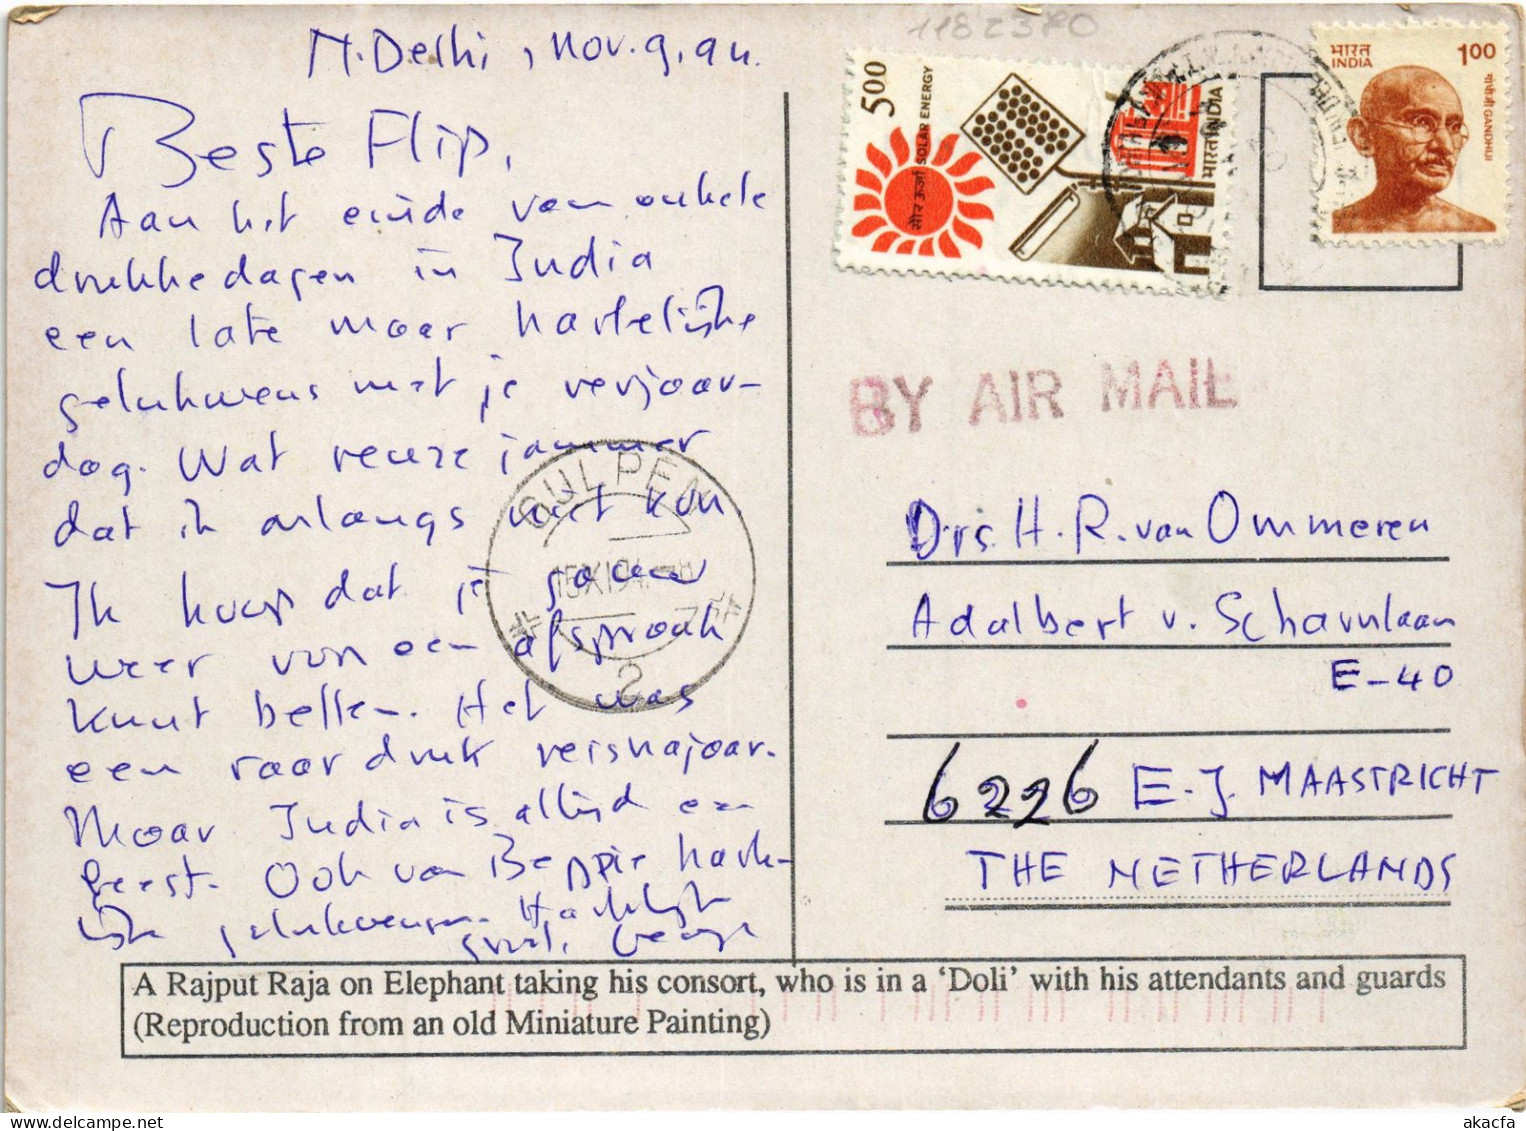 1182370
N. Delhi, nov. 9, 94.
Beste Flip,
Aan het einde van enkele
drukke dagen in India
een late maar hartelijke
gelukwens met je verjaar-
dag. Wat jammer
dat ik onlangs niet kon
Ik hoop dat je
weer van een afspraak
kunt bellen. Het was
een raar druk reisnajaar.
Maar India is altijd een
feest. Ook van Beppie harte-
lijke gelukwensen. Hartelijk
George
5.00
SOLAR ENERGY
सौर ऊर्जा
भारत INDIA
भारत
INDIA
1.00
गांधीजी GANDHIJI
BY AIR MAIL
GULPEN
15 XI 94
2
Drs. H. R. van Ommeren
Adalbert v. Scharnlaan
E-40
6226 E.J. MAASTRICHT
THE NETHERLANDS
A Rajput Raja on Elephant taking his consort, who is in a 'Doli' with his attendants and guards
(Reproduction from an old Miniature Painting)
akacfa